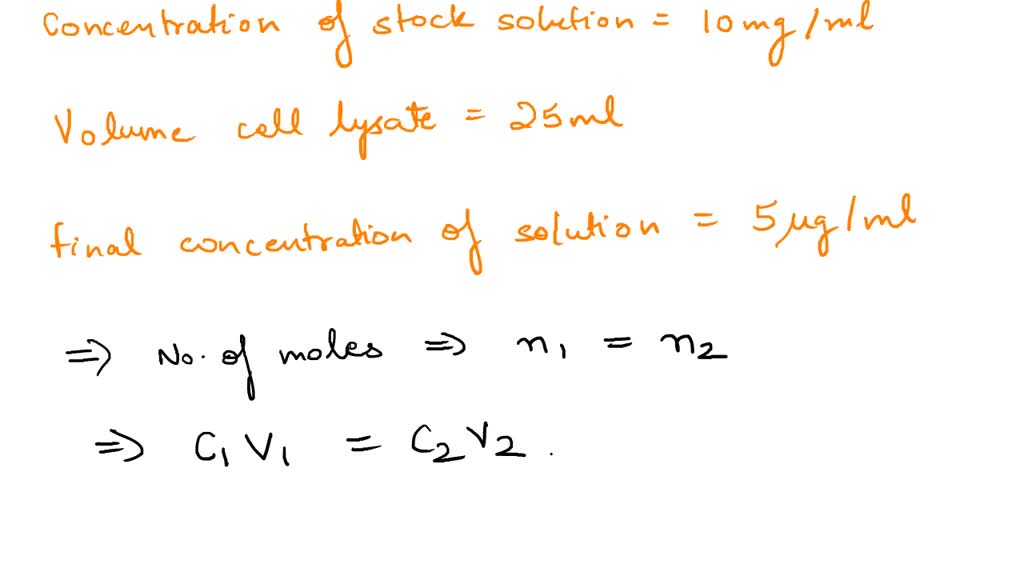 Concentration of stock solution = 10mg/ml
Volume cell lysate = 25ml
final concentration of solution = 5µg/ml
⇒ No. of moles ⇒ n₁ = n₂
⇒ C₁V₁ = C₂V₂.